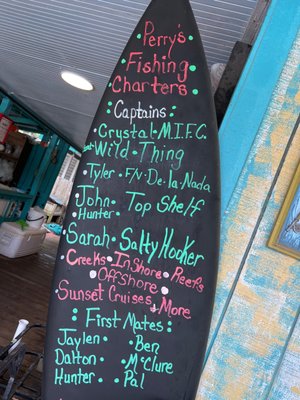 Perry's
Fishing
Charters
Captains
Crystal · M.I.F.C.
Wild · Thing
Tyler · F/V · De · la · Nada
John · Top Shelf
Hunter ·
Sarah · Salty Hooker
Creeks · InShore · Reefs
· OffShore ·
Sunset Cruises & More
: First Mates :
Jaylen · Ben
Dalton · McClure
Hunter · Pal